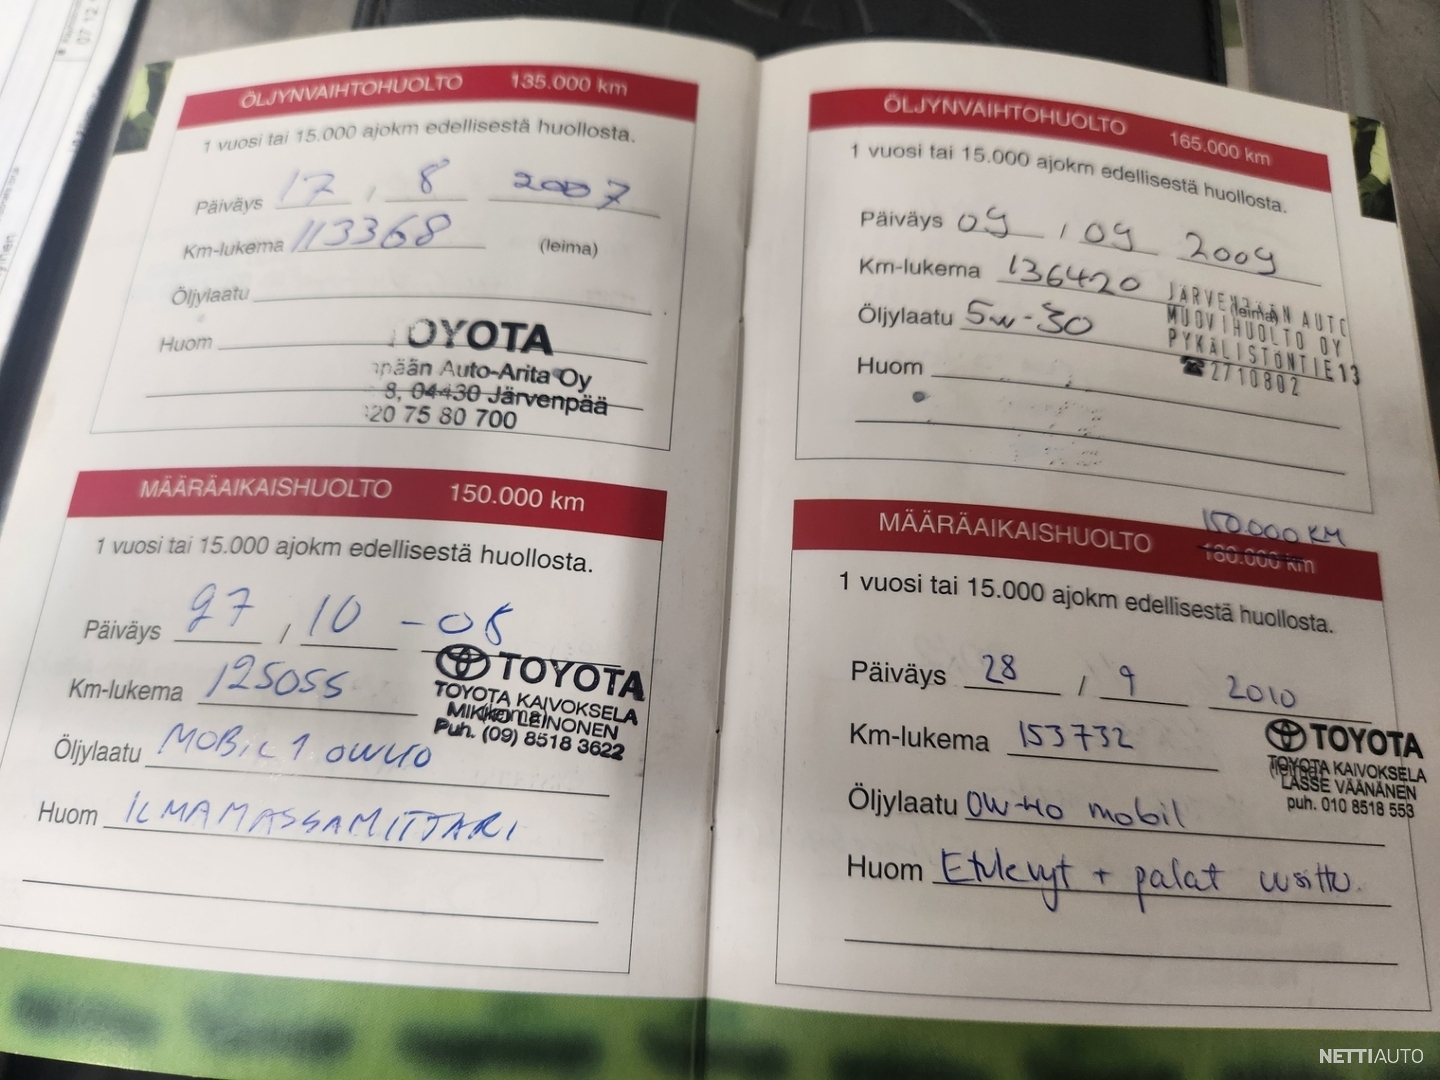 ÖLJYNVAIHTOHUOLTO 135.000 km
1 vuosi tai 15.000 ajokm edellisestä huollosta.
Päiväys 17 , 8 2007
Km-lukema 113368 (leima)
Öljylaatu
Huom
TOYOTA
npään Auto-Arita Oy
8, 04430 Järvenpää
020 75 80 700
MÄÄRÄAIKAISHUOLTO 150.000 km
1 vuosi tai 15.000 ajokm edellisestä huollosta.
Päiväys 27 , 10 -08
Km-lukema 125055
TOYOTA
TOYOTA KAIVOKSELA
MIKKO LEINONEN
Puh. (09) 8518 3622
Öljylaatu MOBIL 1 0W40
Huom ILMAMASSAMITTARI
ÖLJYNVAIHTOHUOLTO 165.000 km
1 vuosi tai 15.000 ajokm edellisestä huollosta.
Päiväys 09 , 09 2009
Km-lukema 136420 (leima)
JÄRVENPÄÄN AUTO
MUOVIHUOLTO OY
PYKÄLISTÖNTIE 13
☎ 2710802
Öljylaatu 5W-30
Huom
150.000 KM
MÄÄRÄAIKAISHUOLTO 180.000 km
1 vuosi tai 15.000 ajokm edellisestä huollosta.
Päiväys 28 , 9 2010
Km-lukema 153732
TOYOTA
TOYOTA KAIVOKSELA
LASSE VÄÄNÄNEN
puh. 010 8518 553
Öljylaatu 0W-40 mobil
Huom Etulevyt + palat usittu.
NETTIAUTO